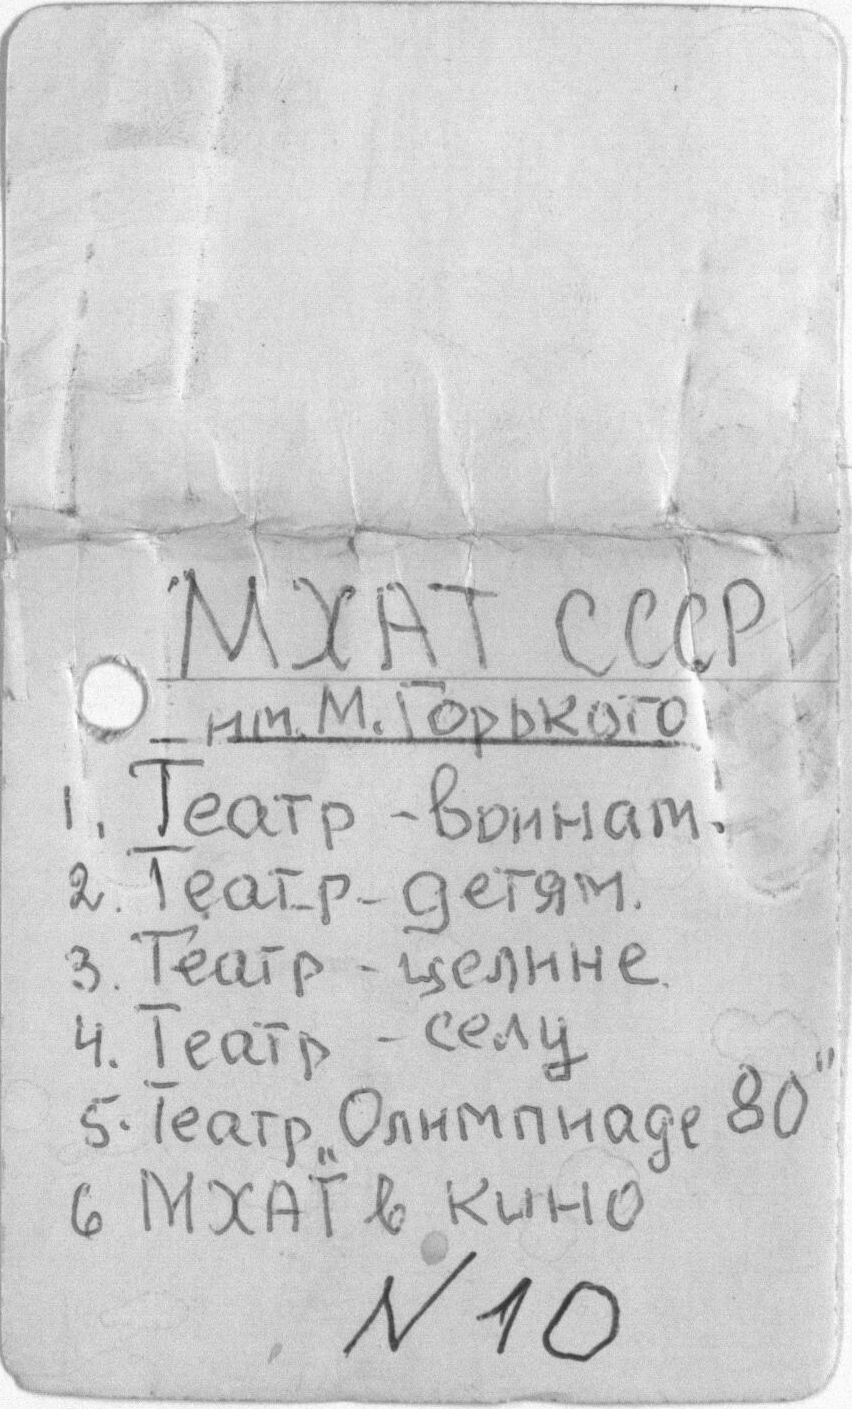 МХАТ СССР
им. М. Горького
1. Театр - воинам.
2. Театр - детям.
3. Театр - целине.
4. Театр - селу
5. Театр „Олимпиаде 80"
6 МХАТ в кино
N 10